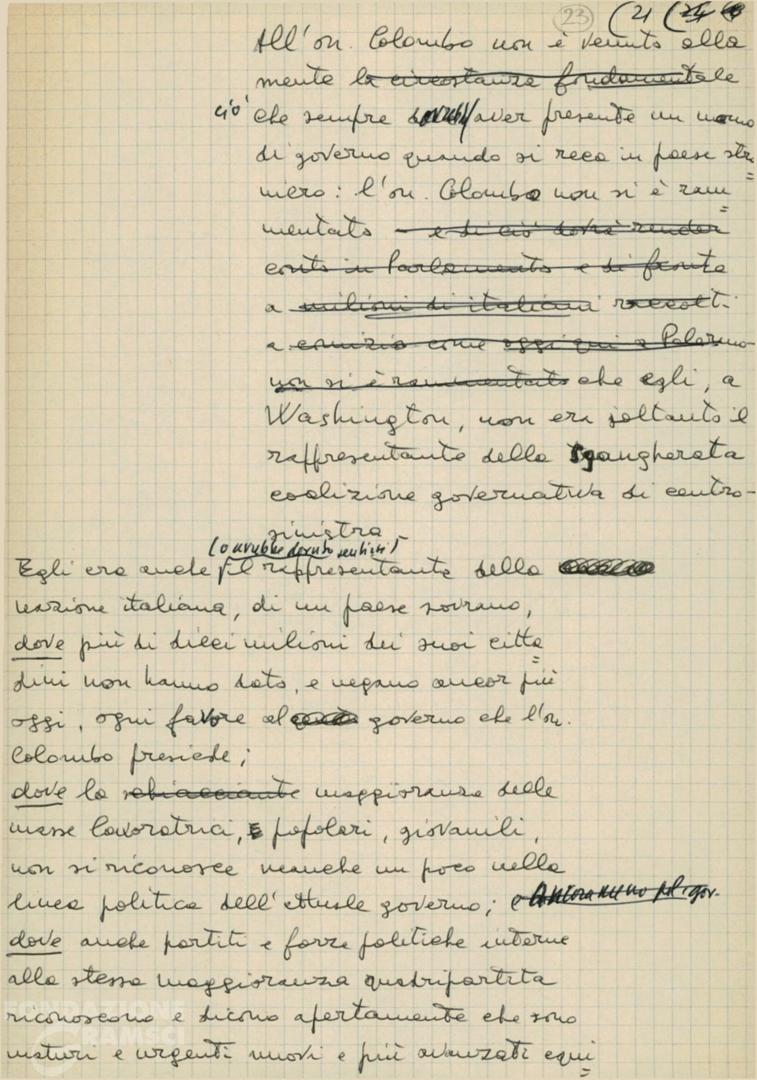 23 (21 (24
All'on. Colombo non è venuto alla
mente la circostanza fondamentale
ciò che sempre dovrebbe aver presente un uomo
di governo quando si reca in paese stra=
niero: l'on. Colombo non si è ram=
mentato – e di ciò dovrà render
conto in Parlamento e di fronte
a milioni di italiani raccolti
a comizio come oggi qui a Palermo –
non si è rammentato che egli, a
Washington, non era soltanto il
rappresentante della sgangherata
coalizione governativa di centro-
sinistra
(o avrebbe dovuto sentirsi)
Egli era anche il rappresentante della
nazione italiana, di un paese sovrano,
dove più di dieci milioni dei suoi citta=
dini non hanno dato, e negano ancor più
oggi, ogni favore al governo che l'on.
Colombo presiede;
dove la schiacciante maggioranza delle
masse lavoratrici, popolari, giovanili,
non si riconosce neanche un poco nella
linea politica dell'attuale governo; e ancora meno nel gov.
dove anche partiti e forze politiche interne
alla stessa maggioranza quadripartita
riconoscono e dicono apertamente che sono
maturi e urgenti nuovi e più avanzati equi=
FONDAZIONE
GRAMSCI